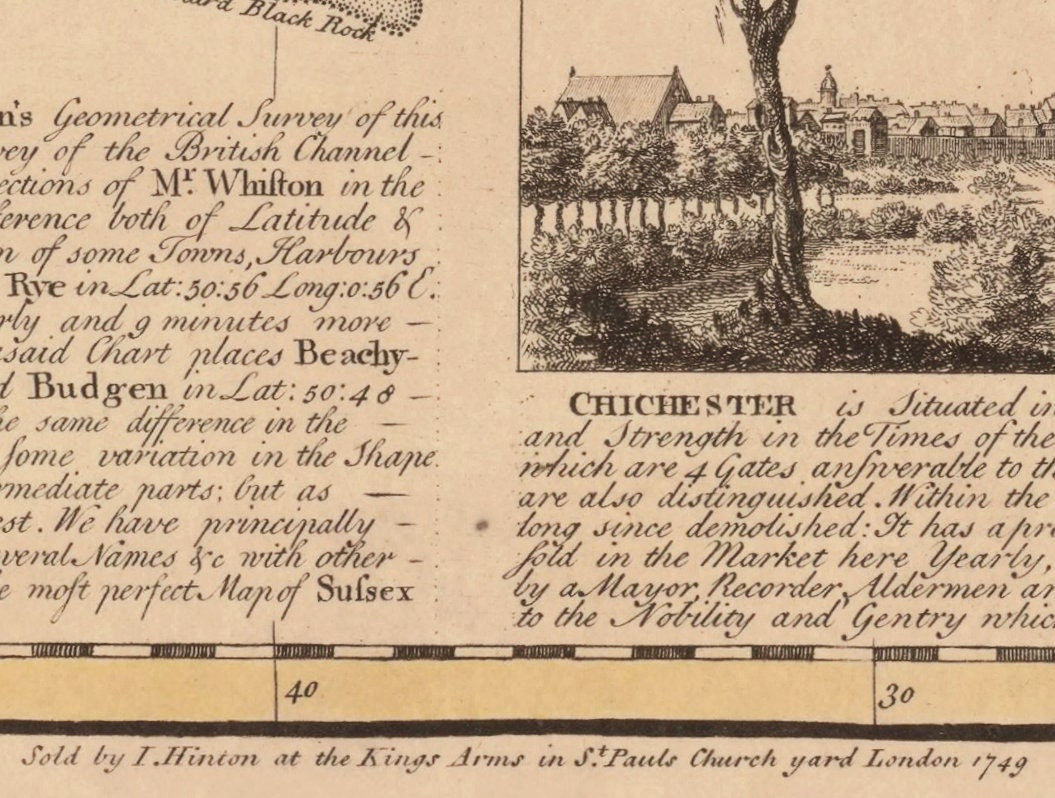 Black Rock
n's Geometrical Survey of this
vey of the British Channel -
ections of Mr. Whiſton in the
ference both of Latitude &
n of some Towns, Harbours
Rye in Lat: 50:56 Long: 0:56 E.
rly and 9 minutes more —
said Chart places Beachy-
d Budgen in Lat: 50:48 —
he same difference in the —
ſome variation in the Shape
rmediate parts; but as —
est. We have principally -
veral Names &c with other -
e moſt perfect Map of Suſsex
CHICHESTER is Situated in
and Strength in the Times of the
which are 4 Gates anſwerable to th
are also distinguished. Within the
long since demolished: It has a pre
ſold in the Market here Yearly,
by a Mayor, Recorder, Aldermen an
to the Nobility and Gentry whic
40
30
Sold by I. Hinton at the Kings Arms in St. Pauls Church yard London 1749